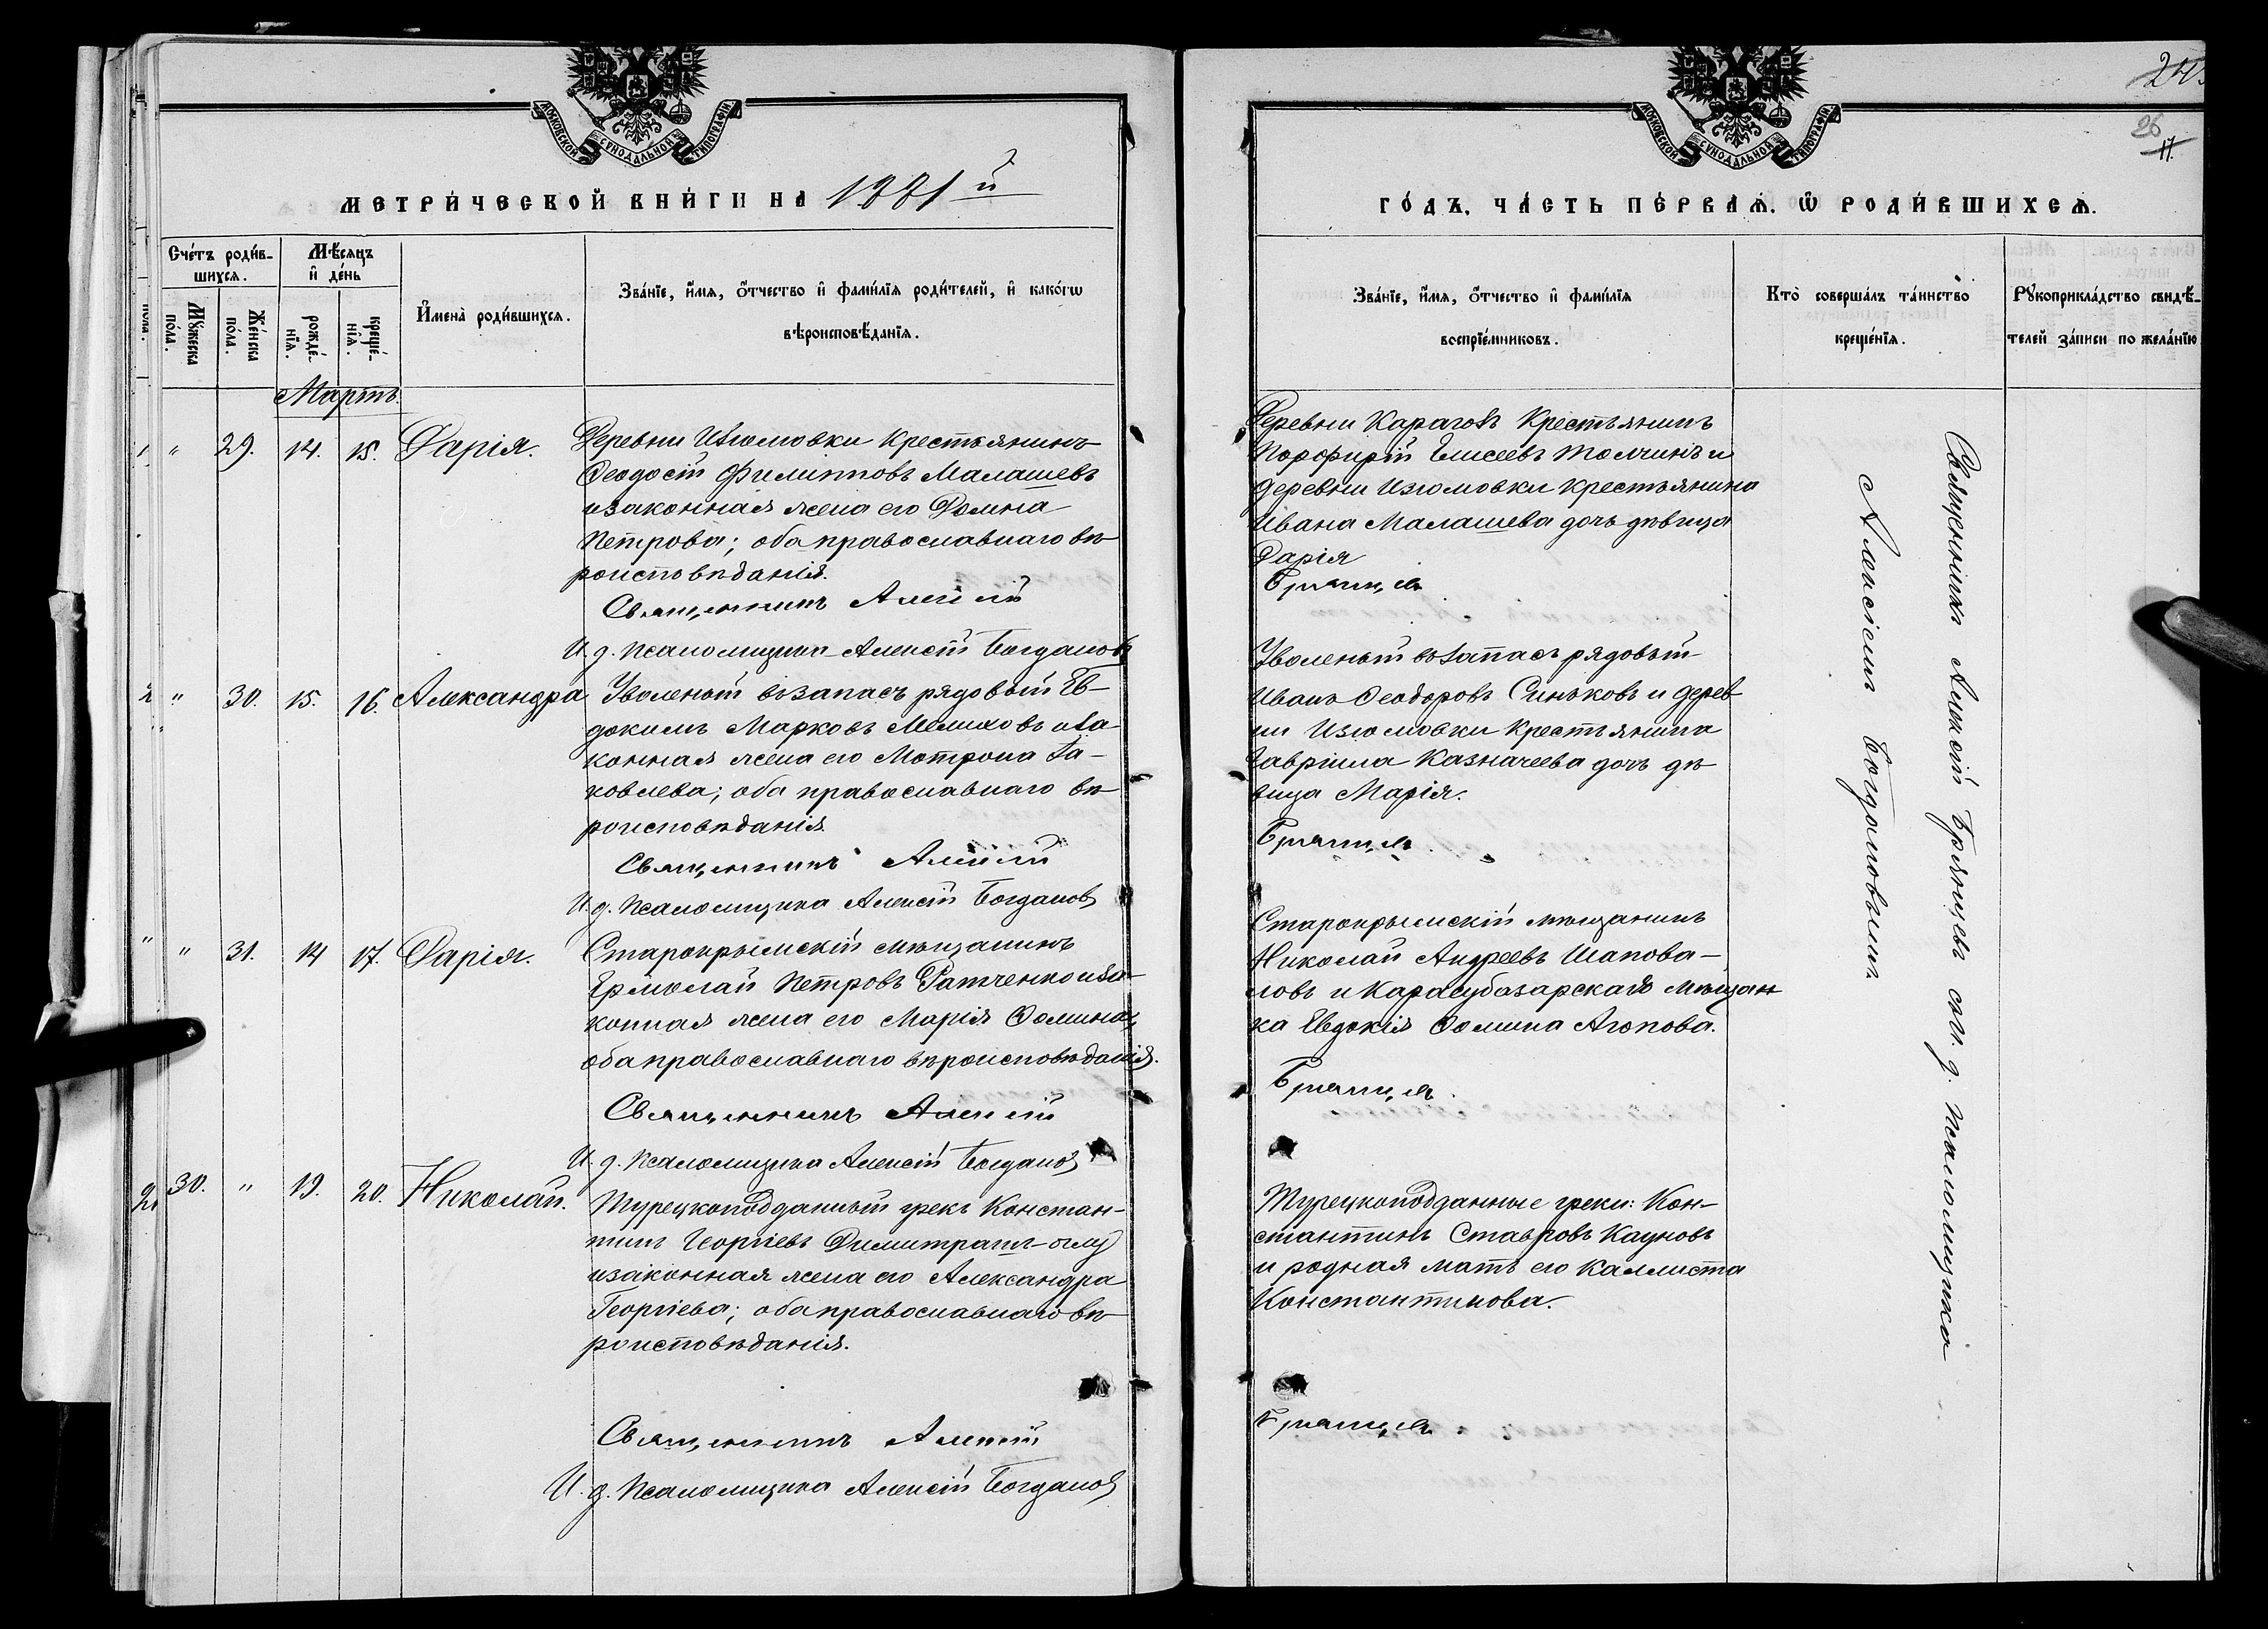 МОСКОВСКОЙ СѴНОДАЛЬНОЙ ТИПОГРАФІИ
МЕТРИ́ЧЕСКОЙ КНИ́ГИ НА 1881й
Сче́тъ роди́в-
шихся.
Мѣ́сяцъ
и҆ де́нь
Му́жеска
по́ла.
Же́нска
по́ла.
рожде́-
нїя.
креще́-
нїя.
И҆мена̀ роди́вшихся.
Зва́нїе, и҆́мя, ѻ҆́тчество и҆ фами́лїя роди́телей, и҆ како́гѡ
вѣроисповѣ́данїя.
Мартъ.
" 29. 14. 15. Дарія.
Деревни Изюмовки крестьянинъ
Ѳеодосій Филипповъ Малашевъ
и законная жена его Домна
Петрова; оба православнаго вѣ-
роисповѣданія.
Священникъ Алексій
И. д. Псаломщика Алексій Богдановъ
" 30. 15. 16. Александра
Уволеный въ запасъ рядовый Ев-
докимъ Марковъ и за-
конная жена его Матрона Іа-
ковлева; оба православнаго вѣ-
роисповѣданія.
Священникъ Алексій
И. д. Псаломщика Алексій Богдановъ
" 31. 14 17. Дарія.
Старокрымскій мѣщанинъ
Ермолай Петровъ Ратченко и за-
конная жена его Марія Ѳомина;
оба православнаго вѣроисповѣданія.
Священникъ Алексій
И. д. Псаломщика Алексій Богдановъ
30. " 19. 20. Николай.
Турецкоподданный грекъ Констан-
тинъ Георгіевъ Димитраки-оглу
и законная жена его Александра
Георгіева; оба православнаго вѣ-
роисповѣданія.
Священникъ Алексій
И. д. Псаломщика Алексій Богдановъ
МОСКОВСКОЙ СѴНОДАЛЬНОЙ ТИПОГРАФІИ
24.
26
17.
ГО́ДЪ, ЧА́СТЬ ПЕ́РВАЯ, Ѡ҆ РОДИ́ВШИХСЯ.
Зва́нїе, и҆́мя, ѻ҆́тчество и҆ фами́лїя
воспрїе́мниковъ.
Кто̀ соверша́лъ та́инство
креще́нїя.
Рꙋкоприкла́дство свидѣ́-
телей за́писи по жела́нїю
Деревни Карагозъ крестьянинъ
Порфирій Елисеевъ Толчинъ и
деревни Изюмовки крестьянина
Ивана Малашева дочь дѣвица
Дарія
Брянцевъ
Уволеный въ запасъ рядовый
Иванъ Ѳеодоровъ Синьковъ и дерев
ни Изюмовки крестьянина
Гавріила Казначеева дочь дѣ-
вица Марія.
Брянцевъ
Старокрымскій мѣщанинъ
Николай Андреевъ Шапова-
ловъ и Карасубазарская мѣщан
ка Евдокія Ѳомина Агопова.
Брянцевъ
Турецкоподданные греки: Кон-
стантинъ Ставровъ Кауновъ
и родная мать его Каллиста
Константинова.
Брянцевъ
Священникъ Алексій Брянцевъ съ и. д. Псаломщика
Алексіемъ Богдановымъ